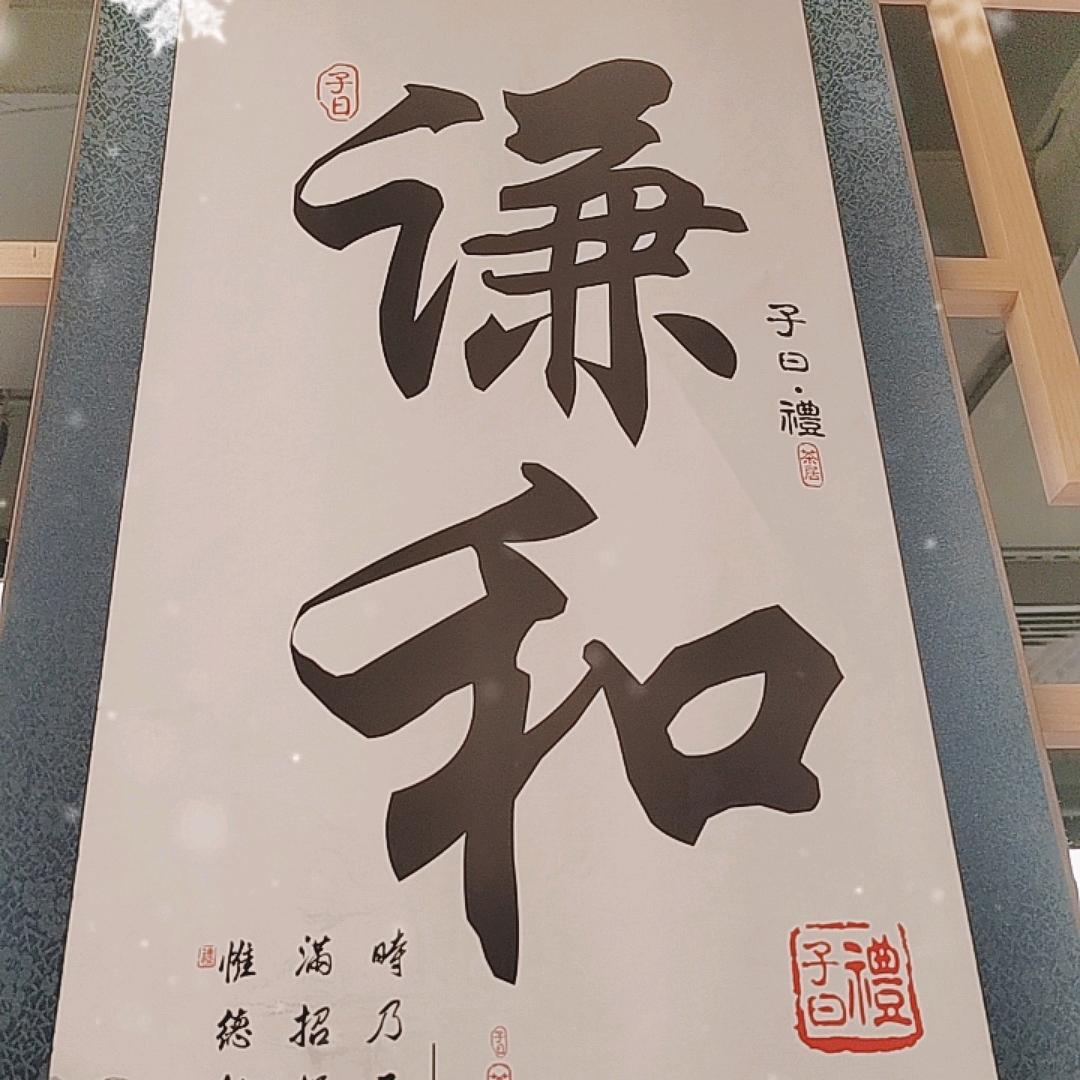 子曰
谦和
子曰·禮
茶居
時乃
滿招
惟德
禮
子曰
禮
子曰